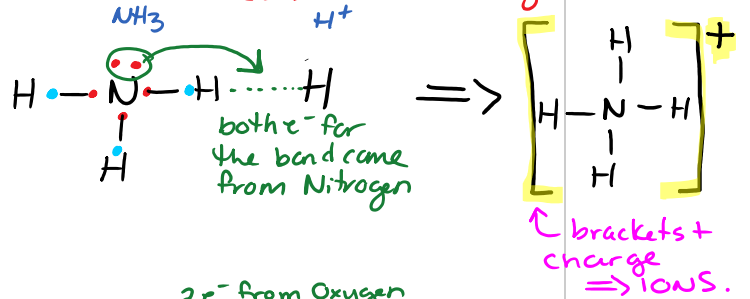 NH3
H+
H N H H
H
both e- for
the bond came
from Nitrogen
=>
[ H
H-N-H
H ]+
brackets +
charge
=> IONS.
2e- from Oxygen